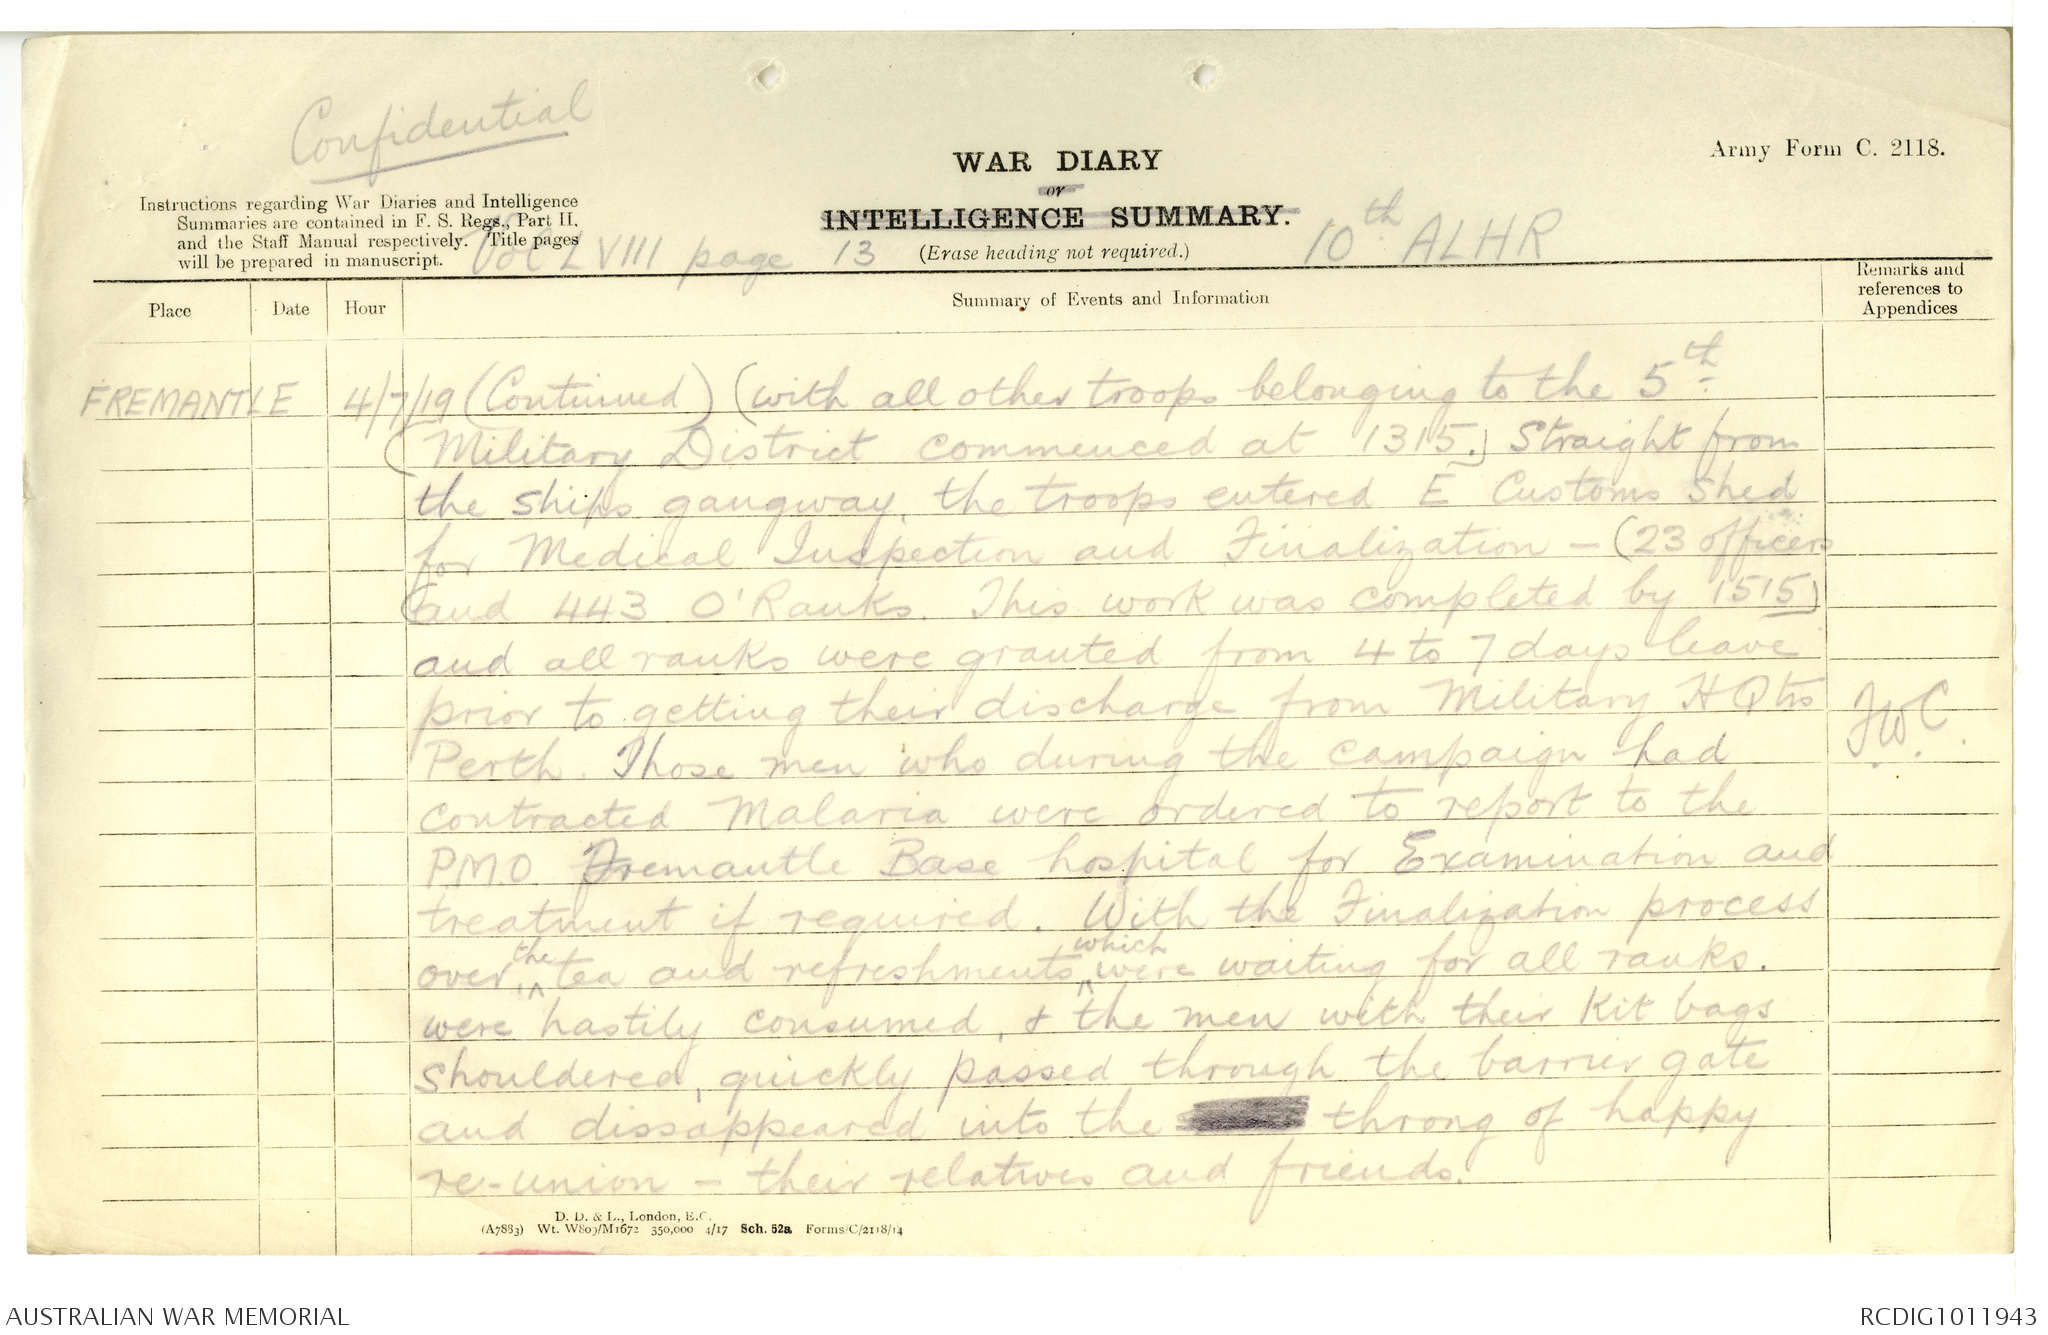 Confidential
Army Form C. 2118.
WAR DIARY
or
INTELLIGENCE SUMMARY.
(Erase heading not required.)
Instructions regarding War Diaries and Intelligence
Summaries are contained in F. S. Regs., Part II.
and the Staff Manual respectively. Title pages
will be prepared in manuscript.
Vol LVIII page 13
10th ALHR
Place
Date
Hour
Summary of Events and Information
Remarks and
references to
Appendices
FREMANTLE 4/7/19 (Continued) (with all other troops belonging to the 5th
(Military District commenced at 1315.) Straight from
the ships gangway, the troops entered E Customs Shed
for Medical Inspection and Finalization - (23 officers
(and 443 O'Ranks. This work was completed by 1515)
and all ranks were granted from 4 to 7 days leave
prior to getting their discharge from Military H Qtrs
Perth. Those men who during the campaign had
contracted Malaria were ordered to report to the
P.M.O. Fremantle Base hospital for Examination and
treatment if required. With the Finalization process
over, the tea and refreshments which were waiting for all ranks.
were hastily consumed, & the men with their Kit bags
shouldered, quickly passed through the barrier gate
and dissappeared into the throng of happy
re-union - their relatives and friends.
JWC.
D. D. & L., London, E.C.
(A7883) Wt. W809/M1672 350,000 4/17 Sch. 52a Forms/C/2118/14
AUSTRALIAN WAR MEMORIAL
RCDIG1011943